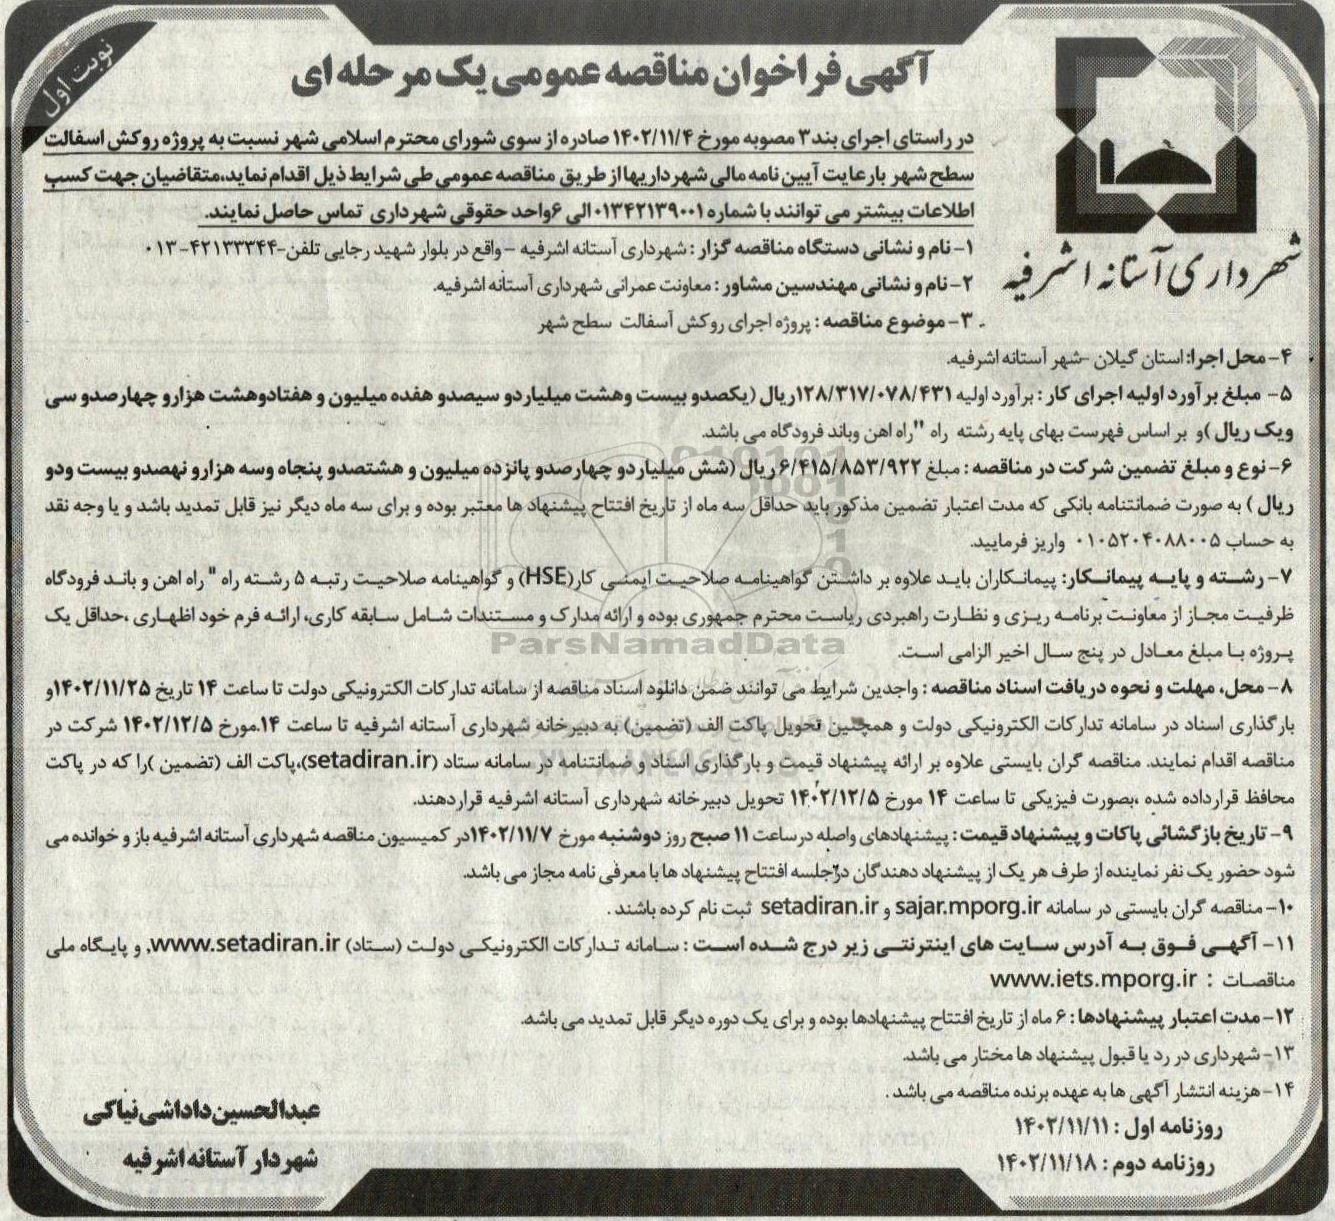 نوبت اول
آگهی فراخوان مناقصه عمومی یک مرحله ای
شهرداری آستانه اشرفیه
در راستای اجرای بند ۳ مصوبه مورخ ۱۴۰۲/۱۱/۴ صادره از سوی شورای محترم اسلامی شهر نسبت به پروژه روکش اسفالت
سطح شهر بارعایت آیین نامه مالی شهرداریها از طریق مناقصه عمومی طی شرایط ذیل اقدام نماید،متقاضیان جهت کسب
اطلاعات بیشتر می توانند با شماره ۰۱۳۴۲۱۳۹۰۰۱ الی ۶ واحد حقوقی شهرداری تماس حاصل نمایند.
۱- نام و نشانی دستگاه مناقصه گزار : شهرداری آستانه اشرفیه - واقع در بلوار شهید رجایی تلفن-۴۲۱۳۳۳۴۴-۰۱۳
۲- نام و نشانی مهندسین مشاور : معاونت عمرانی شهرداری آستانه اشرفیه.
۳- موضوع مناقصه : پروژه اجرای روکش آسفالت سطح شهر
۴- محل اجرا: استان گیلان -شهر آستانه اشرفیه.
۵- مبلغ بر آورد اولیه اجرای کار : برآورد اولیه ۱۲۸/۳۱۷/۰۷۸/۴۳۱ریال (یکصدو بیست وهشت میلیاردو سیصدو هفده میلیون و هفتادوهشت هزارو چهارصدو سی
ویک ریال )و بر اساس فهرست بهای پایه رشته راه "راه اهن وباند فرودگاه می باشد.
۶- نوع و مبلغ تضمین شرکت در مناقصه : مبلغ ۶/۴۱۵/۸۵۳/۹۲۲ ریال (شش میلیاردو چهارصدو پانزده میلیون و هشتصدو پنجاه وسه هزارو نهصدو بیست ودو
ریال ) به صورت ضمانتنامه بانکی که مدت اعتبار تضمین مذکور باید حداقل سه ماه از تاریخ افتتاح پیشنهاد ها معتبر بوده و برای سه ماه دیگر نیز قابل تمدید باشد و یا وجه نقد
به حساب ۰۱۰۵۲۰۴۰۸۸۰۰۵ واریز فرمایید.
۷- رشته و پایه پیمانکار: پیمانکاران باید علاوه بر داشتن گواهینامه صلاحیت ایمنی کار(HSE) و گواهینامه صلاحیت رتبه ۵ رشته راه " راه اهن و باند فرودگاه
ظرفیت مجاز از معاونت برنامه ریزی و نظارت راهبردی ریاست محترم جمهوری بوده و ارائه مدارک و مستندات شامل سابقه کاری، ارائه فرم خود اظهاری ،حداقل یک
پروژه با مبلغ معادل در پنج سال اخیر الزامی است.
ParsNamadData
۸- محل، مهلت و نحوه دریافت اسناد مناقصه : واجدین شرایط می توانند ضمن دانلود اسناد مناقصه از سامانه تدارکات الکترونیکی دولت تا ساعت ۱۴ تاریخ ۱۴۰۲/۱۱/۲۵و
بارگذاری اسناد در سامانه تدارکات الکترونیکی دولت و همچنین تحویل پاکت الف (تضمین) به دبیرخانه شهرداری آستانه اشرفیه تا ساعت ۱۴.مورخ ۱۴۰۲/۱۲/۵ شرکت در
مناقصه اقدام نمایند. مناقصه گران بایستی علاوه بر ارائه پیشنهاد قیمت و بارگذاری اسناد و ضمانتنامه در سامانه ستاد (setadiran.ir)،پاکت الف (تضمین )را که در پاکت
محافظ قرارداده شده ،بصورت فیزیکی تا ساعت ۱۴ مورخ ۱۴۰۲/۱۲/۵ تحویل دبیرخانه شهرداری آستانه اشرفیه قراردهند.
۹- تاریخ بازگشائی پاکات و پیشنهاد قیمت : پیشنهادهای واصله درساعت ۱۱ صبح روز دوشنبه مورخ ۱۴۰۲/۱۱/۷در کمیسیون مناقصه شهرداری آستانه اشرفیه باز و خوانده می
شود حضور یک نفر نماینده از طرف هر یک از پیشنهاد دهندگان درجلسه افتتاح پیشنهاد ها با معرفی نامه مجاز می باشد.
۱۰- مناقصه گران بایستی در سامانه sajar.mporg.ir و setadiran.ir ثبت نام کرده باشند .
۱۱- آگهی فوق به آدرس سایت های اینترنتی زیر درج شده است : سامانه تدارکات الکترونیکی دولت (ستاد) www.setadiran.ir, و پایگاه ملی
مناقصات : www.iets.mporg.ir
۱۲- مدت اعتبار پیشنهادها : ۶ ماه از تاریخ افتتاح پیشنهادها بوده و برای یک دوره دیگر قابل تمدید می باشد.
۱۳- شهرداری در رد یا قبول پیشنهاد ها مختار می باشد.
۱۴- هزینه انتشار آگهی ها به عهده برنده مناقصه می باشد .
روزنامه اول : ۱۴۰۲/۱۱/۱۱
روزنامه دوم : ۱۴۰۲/۱۱/۱۸
عبدالحسین داداشی نیاکی
شهردار آستانه اشرفیه